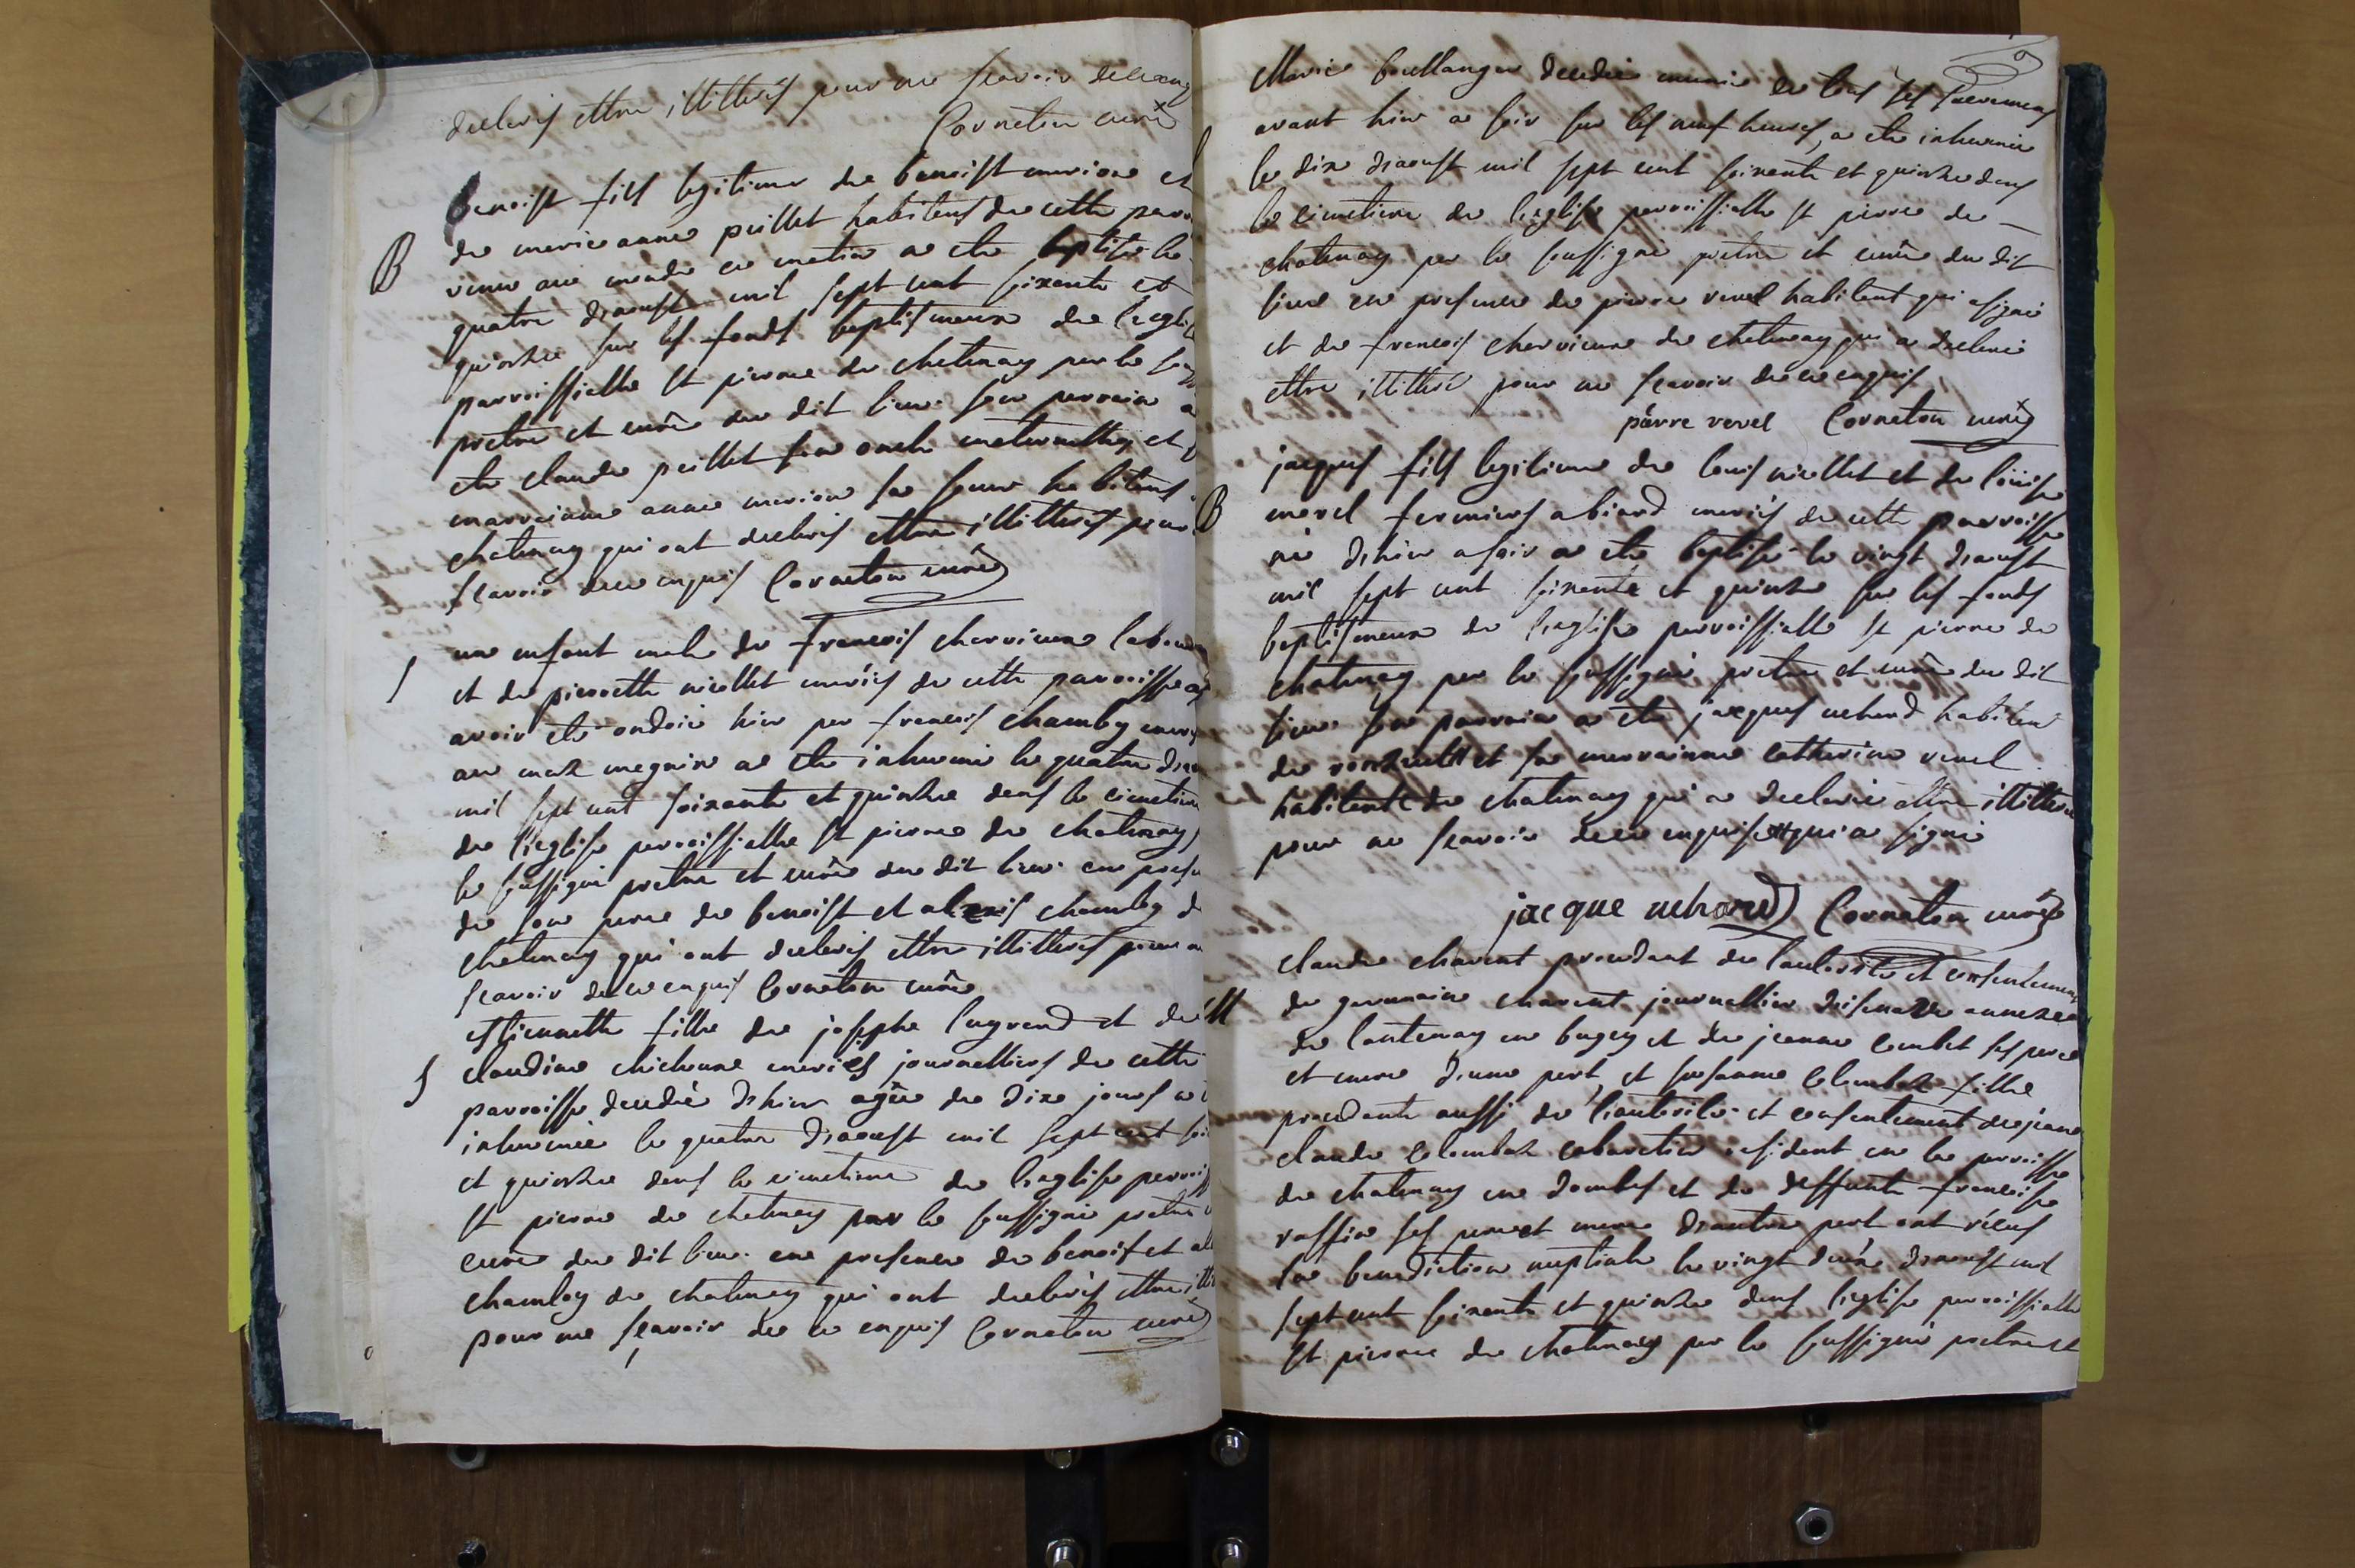 declarés ettre illitterés pour ne scavoir dece enq
Corneton curé
B
benoist fils legitime de benoist merion et
de marie anne peillet habitans de cette parro
venu au monde ce matin a ete baptisé le
quatre d'aoust mil sept cent soixante et
quinze sur les fonds baptismeaux de l'eglis
parroissialle st pierre de chatenay par le sou
pretre et curé du dit lieu son parrain a
ete claude peillet son oncle maternelle, et
marrainne anne merion sa soeur habitans
chatenay qui ont declarés ettre illitterés pour
scavoir de ce enquis Corneton curé
S
un enfant male de francois charvieux labour
et de pierrette niollet mariés de cette parroisse ap
avoir ete ondoié hier par francois chamley
au mas megnin a ete inhumé le quatre d'aou
mil sept cent soixante et quinze dans le cimetiere
de l'eglise parroissialle st pierre de chatenay
le soussigné pretre et curé du dit lieu en prese
de son pere de benoist et alexis chamley d
chatenay qui ont declarés ettre illitterés pour ne
scavoir de ce enquis Corneton curé
S
estiennette fille de josephe lugrand et de
claudine chicheux mariés journalliers de cette
parroisse decedée d'hier agée de dix jours a
inhumée le quatre d'aoust mil sept cent soi
et quinze dans le cimetiere de l'eglise parroiss
st pierre de chatenay par le soussigné pretre
curé du dit lieu en presence de benoist et al
chamley de chatenay qui ont declarés ettre illi
pour ne scavoir de ce enquis Corneton curé
9
Marie boullanger decedée munie de tous ses sacremens
avant hier a soir sur les neuf heures, a ete inhumée
le dix d'aoust mil sept cent soixante et quinze dans
le cimetiere de l'eglise parroissialle st pierre de
chatenay par le soussigné pretre et curé du dit
lieu en presence de pierre revel habitant qui a signé
et de francois charvieux de chatenay qui a declaré
ettre illitteré pour ne scavoir de ce enquis
pierre revel Corneton curé
B
jacques fils legitime de louis niollet et de loüise
morel fermiers a biard mariés de cette parroisse
né d'hier a soir a ete baptisé le vingt d'aoust
mil sept cent soixante et quinze sur les fonds
baptismeaux de l'eglise parroissialle st pierre de
chatenay par le soussigné pretre et curé du dit
lieu son parrain a ete jacques nehard habitan
de ronzuel et sa marrainne catherine revel
habitante de chatenay qui a declarée ettre illitteré
pour ne scavoir de ce enquise et qui a signé
jacque nehord Corneton curé
M
claude charent procedant de l'autorité et consentement
de germain charent journallier d'isenave annexe
de lantenay en bugey et de jeanne combet ses pere
et mere d'une part, et susanne colombat fille
procedante aussi de l'autorité et consentement de jean
claude colombat cabaretier resident en la parroisse
de chatenay en dombes et de deffunte francoise
raffin ses pere et mere d'autre part ont receus
la benediction nuptiale le vingt deux d'aoust mil
sept cent soixante et quinze dans l'eglise parroissialle
st pierre de chatenay par le soussigné pretre et